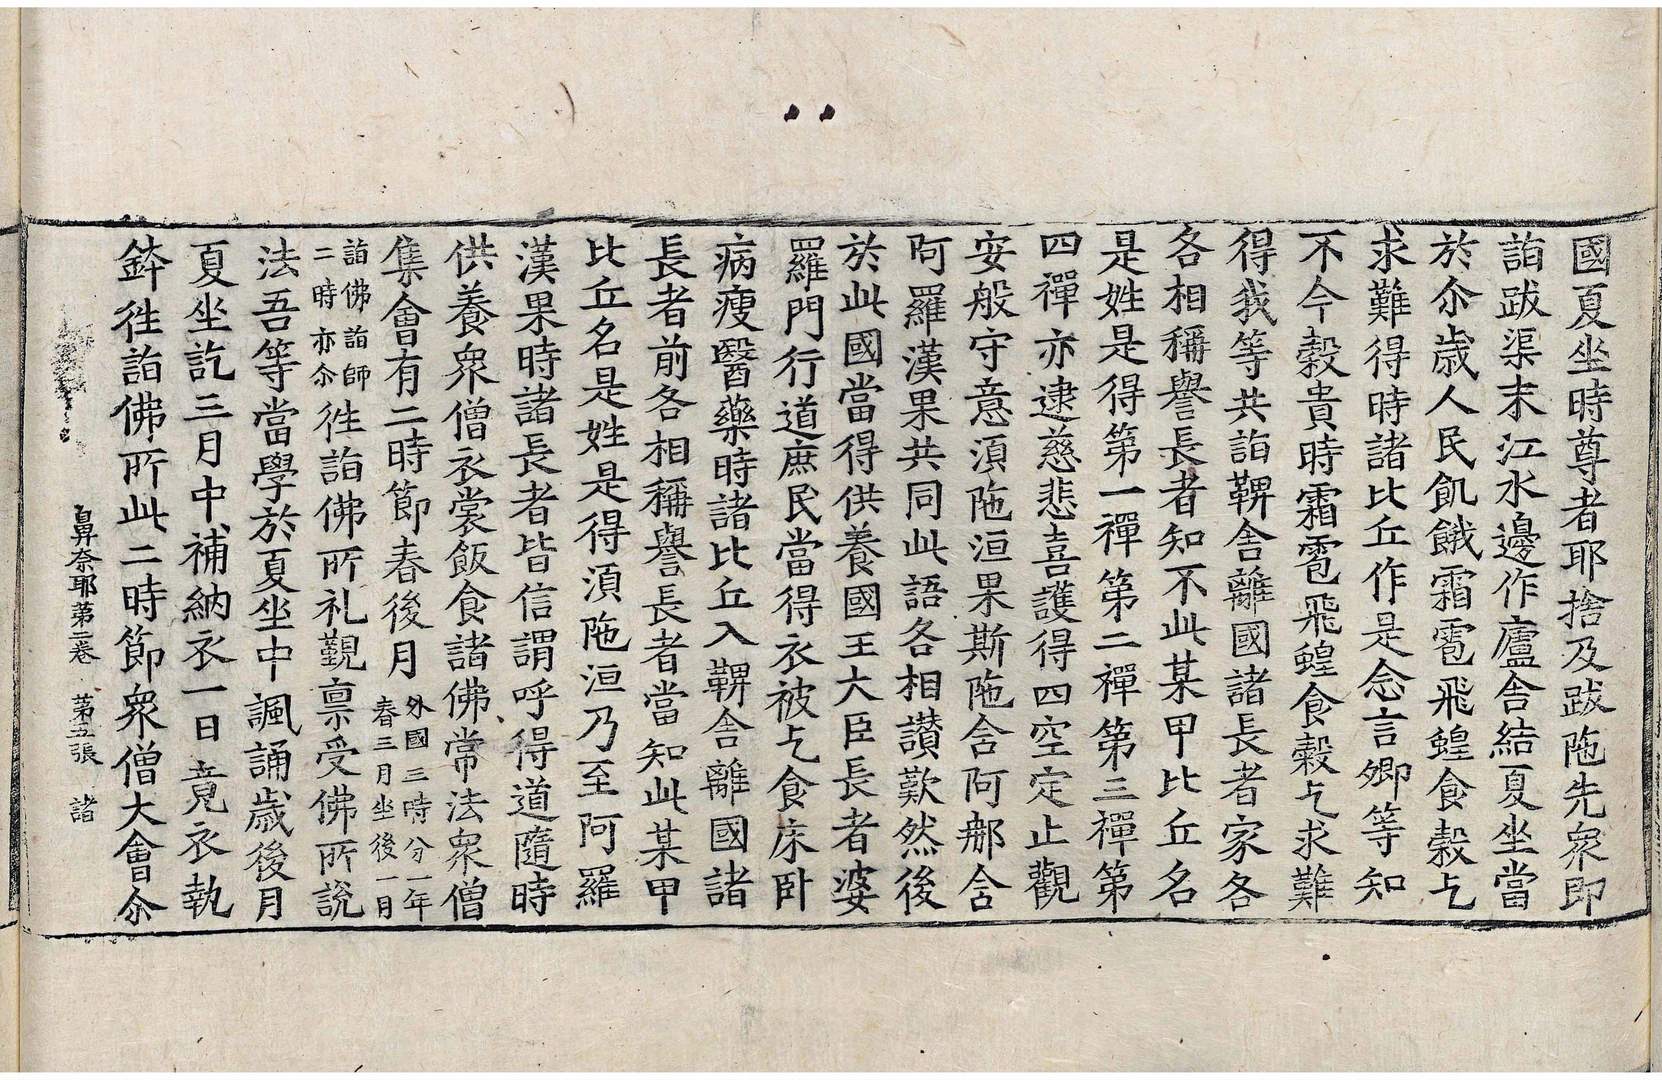 國夏坐時尊者耶捨及跋陁先衆即
詣跋渠末江水邊作廬舍結夏坐當
於尒歳人民飢餓霜雹飛蝗食穀乞
求難得時諸比丘作是念言卿等知
不今穀貴時霜雹飛蝗食穀乞求難
得我等共詣鞞舍離國諸長者家各
各相稱譽長者知不此某甲比丘名
是姓是得第一禪第二禪第三禪第
四禪亦逮慈悲喜護得四空定止觀
安般守意湏陁洹果斯陁含阿那含
阿羅漢果共同此語各相讃歎然後
於此國當得供養國王大臣長者婆
羅門行道庶民當得衣被乞食床卧
病瘦醫藥時諸比丘入鞞舍離國諸
長者前各相稱譽長者當知此某甲
比丘名是姓是得湏陁洹乃至阿羅
漢果時諸長者皆信謂呼得道隨時
供養衆僧衣裳飯食諸佛常法衆僧
集會有二時節春後月外國三時分一年
春三月坐後一月
詣佛詣師
二時亦尒徃詣佛所礼覲禀受佛所說
法吾等當學於夏坐中諷誦歳後月
夏坐訖三月中補納衣一日竟衣執
鉢徃詣佛所此二時節衆僧大會尒
鼻奈耶第二卷 第五張 諸